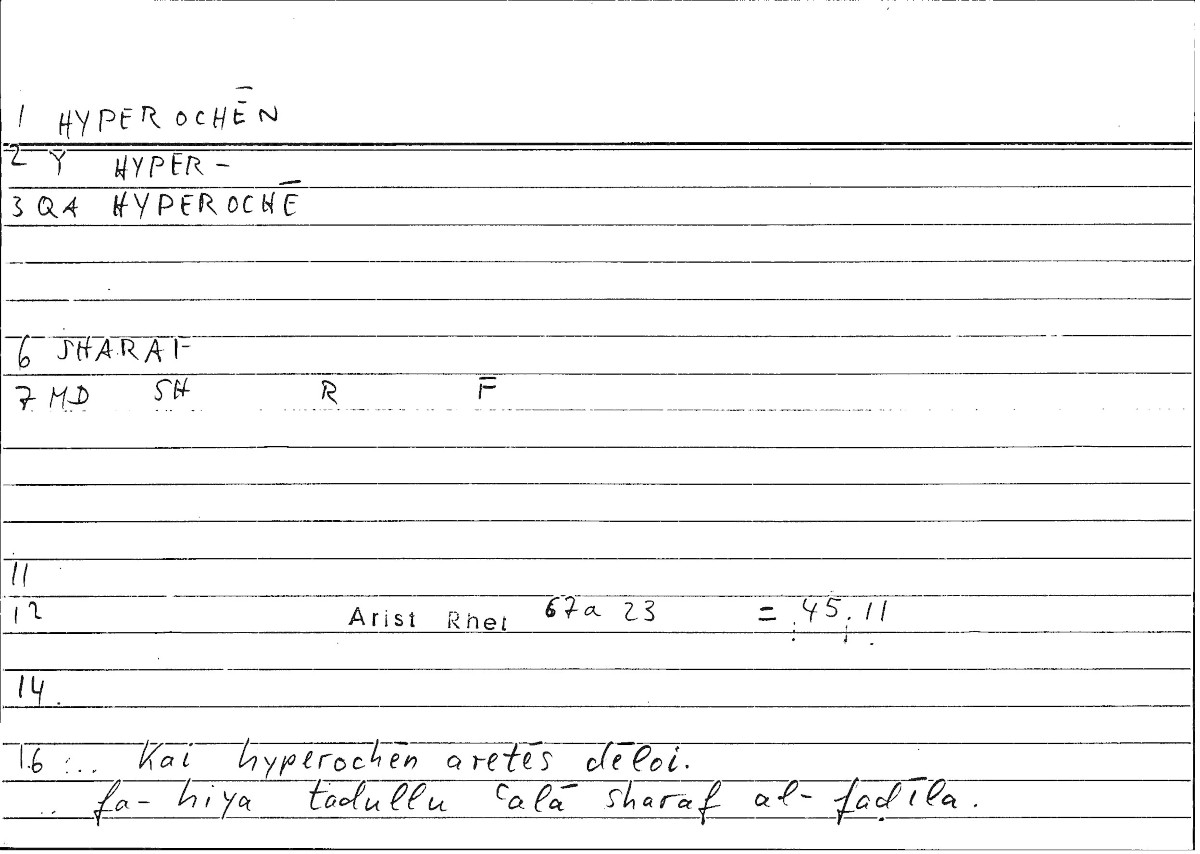 1 HYPEROCHĒN
2 Y HYPER-
3 QA HYPEROCHĒ
6 SHARAF
7 MD SH R F
11
12 Arist Rhet 67a 23 = 45,11
14.
16 ... Kai hyperochēn aretēs dēloi.
.. fa-hiya tadullu ʿalā sharaf al-faḍīla.